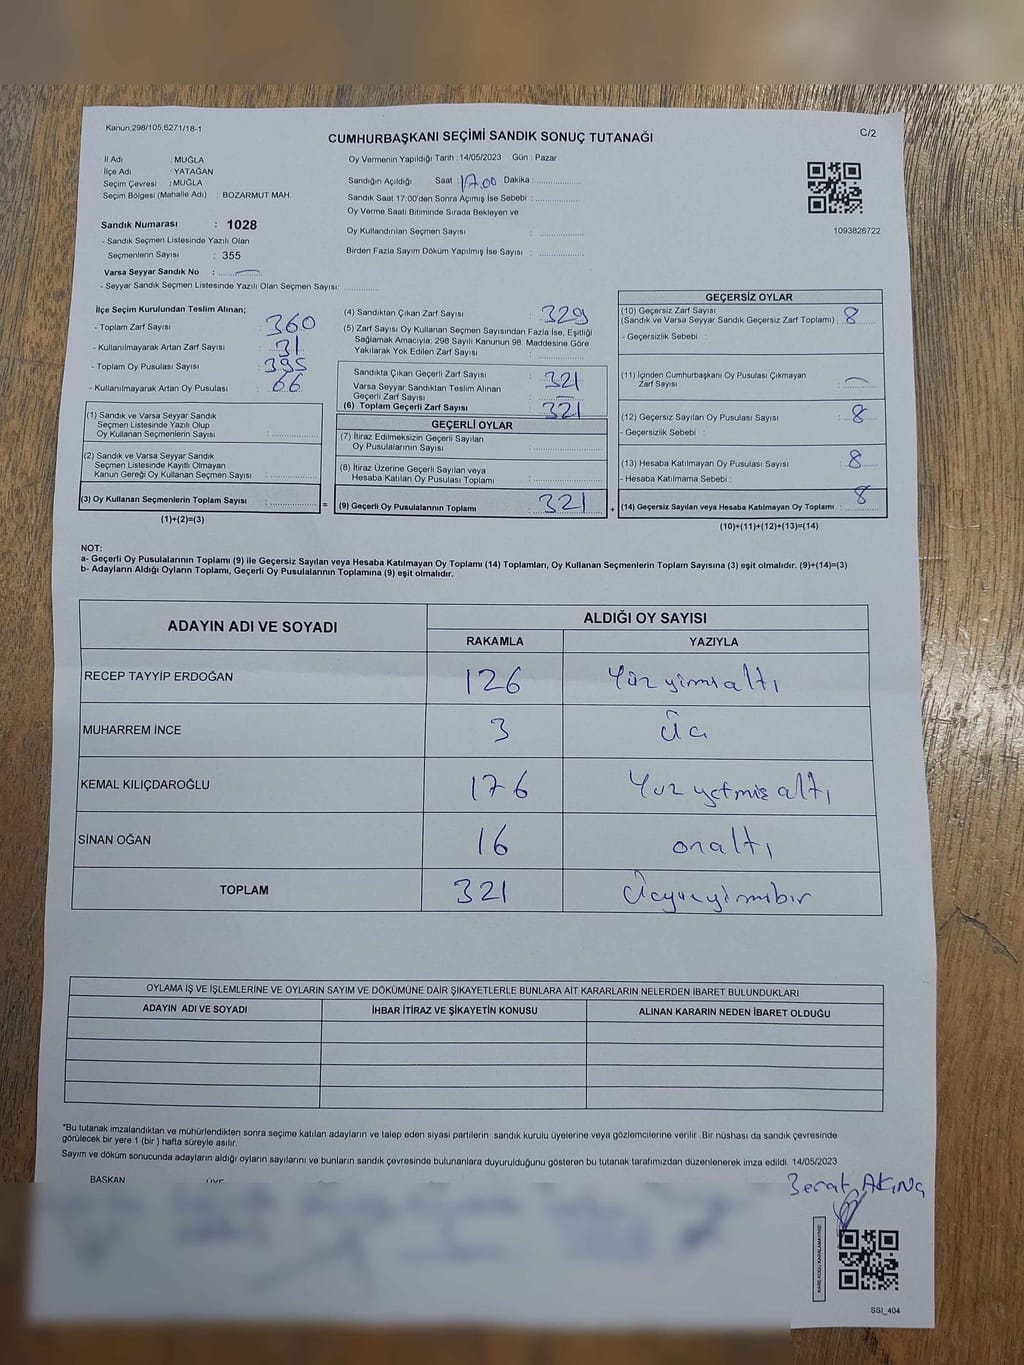 Kanun;298/105;6271/18-1
C/2
CUMHURBAŞKANI SEÇİMİ SANDIK SONUÇ TUTANAĞI
İl Adı : MUĞLA
İlçe Adı : YATAĞAN
Seçim Çevresi : MUĞLA
Seçim Bölgesi (Mahalle Adı) : BOZARMUT MAH.
Sandık Numarası : 1028
- Sandık Seçmen Listesinde Yazılı Olan
Seçmenlerin Sayısı : 355
Varsa Seyyar Sandık No :
- Seyyar Sandık Seçmen Listesinde Yazılı Olan Seçmen Sayısı:
Oy Vermenin Yapıldığı Tarih :14/05/2023 Gün : Pazar
Sandığın Açıldığı Saat : 17.00 Dakika :
Sandık Saat 17:00'den Sonra Açımış İse Sebebi :
Oy Verme Saati Bitiminde Sırada Bekleyen ve
Oy Kullandırılan Seçmen Sayısı :
Birden Fazla Sayım Döküm Yapılmış İse Sayısı :
1093826722
İlçe Seçim Kurulundan Teslim Alınan;
- Toplam Zarf Sayısı : 360
- Kullanılmayarak Artan Zarf Sayısı : 31
- Toplam Oy Pusulası Sayısı : 395
- Kullanılmayarak Artan Oy Pusulası : 66
(1) Sandık ve Varsa Seyyar Sandık
Seçmen Listesinde Yazılı Olup
Oy Kullanan Seçmenlerin Sayısı :
(2) Sandık ve Varsa Seyyar Sandık
Seçmen Listesinde Kayıtlı Olmayan
Kanun Gereği Oy Kullanan Seçmen Sayısı :
(3) Oy Kullanan Seçmenlerin Toplam Sayısı :
(1)+(2)=(3)
=
(4) Sandıktan Çıkan Zarf Sayısı : 329
(5) Zarf Sayısı Oy Kullanan Seçmen Sayısından Fazla İse, Eşitliği
Sağlamak Amacıyla; 298 Sayılı Kanunun 98. Maddesine Göre
Yakılarak Yok Edilen Zarf Sayısı :
Sandıkta Çıkan Geçerli Zarf Sayısı : 321
Varsa Seyyar Sandıktan Teslim Alınan
Geçerli Zarf Sayısı :
(6) Toplam Geçerli Zarf Sayısı : 321
GEÇERLİ OYLAR
(7) İtiraz Edilmeksizin Geçerli Sayılan
Oy Pusulalarının Sayısı :
(8) İtiraz Üzerine Geçerli Sayılan veya
Hesaba Katılan Oy Pusulası Toplamı :
(9) Geçerli Oy Pusulalarının Toplamı : 321
+
GEÇERSİZ OYLAR
(10) Geçersiz Zarf Sayısı
(Sandık ve Varsa Seyyar Sandık Geçersiz Zarf Toplamı) : 8
- Geçersizlik Sebebi :
(11) İçinden Cumhurbaşkanı Oy Pusulası Çıkmayan
Zarf Sayısı :
(12) Geçersiz Sayılan Oy Pusulası Sayısı : 8
- Geçersizlik Sebebi :
(13) Hesaba Katılmayan Oy Pusulası Sayısı : 8
- Hesaba Katılmama Sebebi :
(14) Geçersiz Sayılan veya Hesaba Katılmayan Oy Toplamı : 8
(10)+(11)+(12)+(13)=(14)
NOT:
a- Geçerli Oy Pusulalarının Toplamı (9) ile Geçersiz Sayılan veya Hesaba Katılmayan Oy Toplamı (14) Toplamları, Oy Kullanan Seçmenlerin Toplam Sayısına (3) eşit olmalıdır. (9)+(14)=(3)
b- Adayların Aldığı Oyların Toplamı, Geçerli Oy Pusulalarının Toplamına (9) eşit olmalıdır.
ADAYIN ADI VE SOYADI
ALDIĞI OY SAYISI
RAKAMLA YAZIYLA
RECEP TAYYİP ERDOĞAN 126 Yüz yirmi altı
MUHARREM İNCE 3 Üç
KEMAL KILIÇDAROĞLU 176 Yüz yetmiş altı
SİNAN OĞAN 16 onaltı
TOPLAM 321 Üçyüzyirmibir
OYLAMA İŞ VE İŞLEMLERİNE VE OYLARIN SAYIM VE DÖKÜMÜNE DAİR ŞİKAYETLERLE BUNLARA AİT KARARLARIN NELERDEN İBARET BULUNDUKLARI
ADAYIN ADI VE SOYADI İHBAR İTİRAZ VE ŞİKAYETİN KONUSU ALINAN KARARIN NEDEN İBARET OLDUĞU
*Bu tutanak imzalandıktan ve mühürlendikten sonra seçime katılan adayların ve talep eden siyasi partilerin sandık kurulu üyelerine veya gözlemcilerine verilir .Bir nüshası da sandık çevresinde
görülecek bir yere 1 (bir ) hafta süreyle asılır.
Sayım ve döküm sonucunda adayların aldığı oyların sayılarını ve bunların sandık çevresinde bulunanlara duyurulduğunu gösteren bu tutanak tarafımızdan düzenlenerek imza edildi. 14/05/2023
BAŞKAN ÜYE
Berat AKINCI
KARE KODU KARALAMAYINIZ!
SSI_404